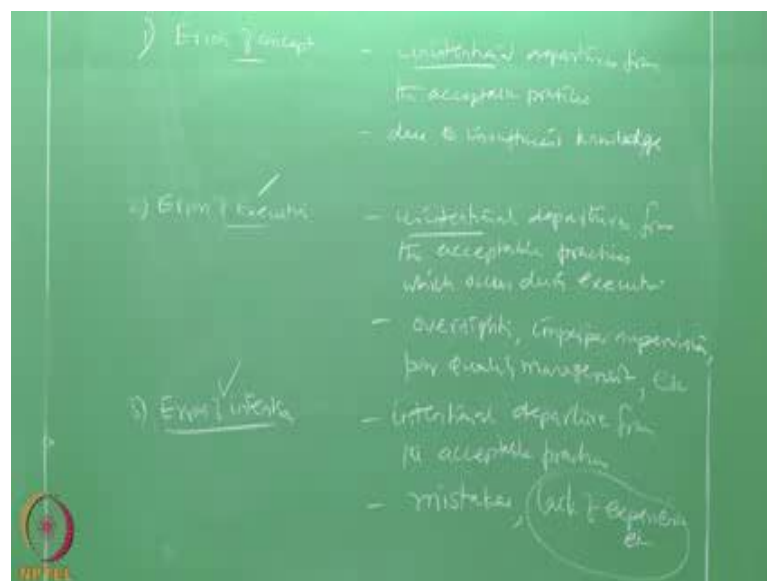 1) Error of concept - unintentional departure from
the acceptable practices
- due to insufficient knowledge
2) Error of Execution - unintentional departure from
the acceptable practices
which occur during execution
- oversights, improper supervision,
poor quality management, etc
3) Error of intention - intentional departure from
the acceptable practices
- mistakes, lack of experience
etc
NPTEL